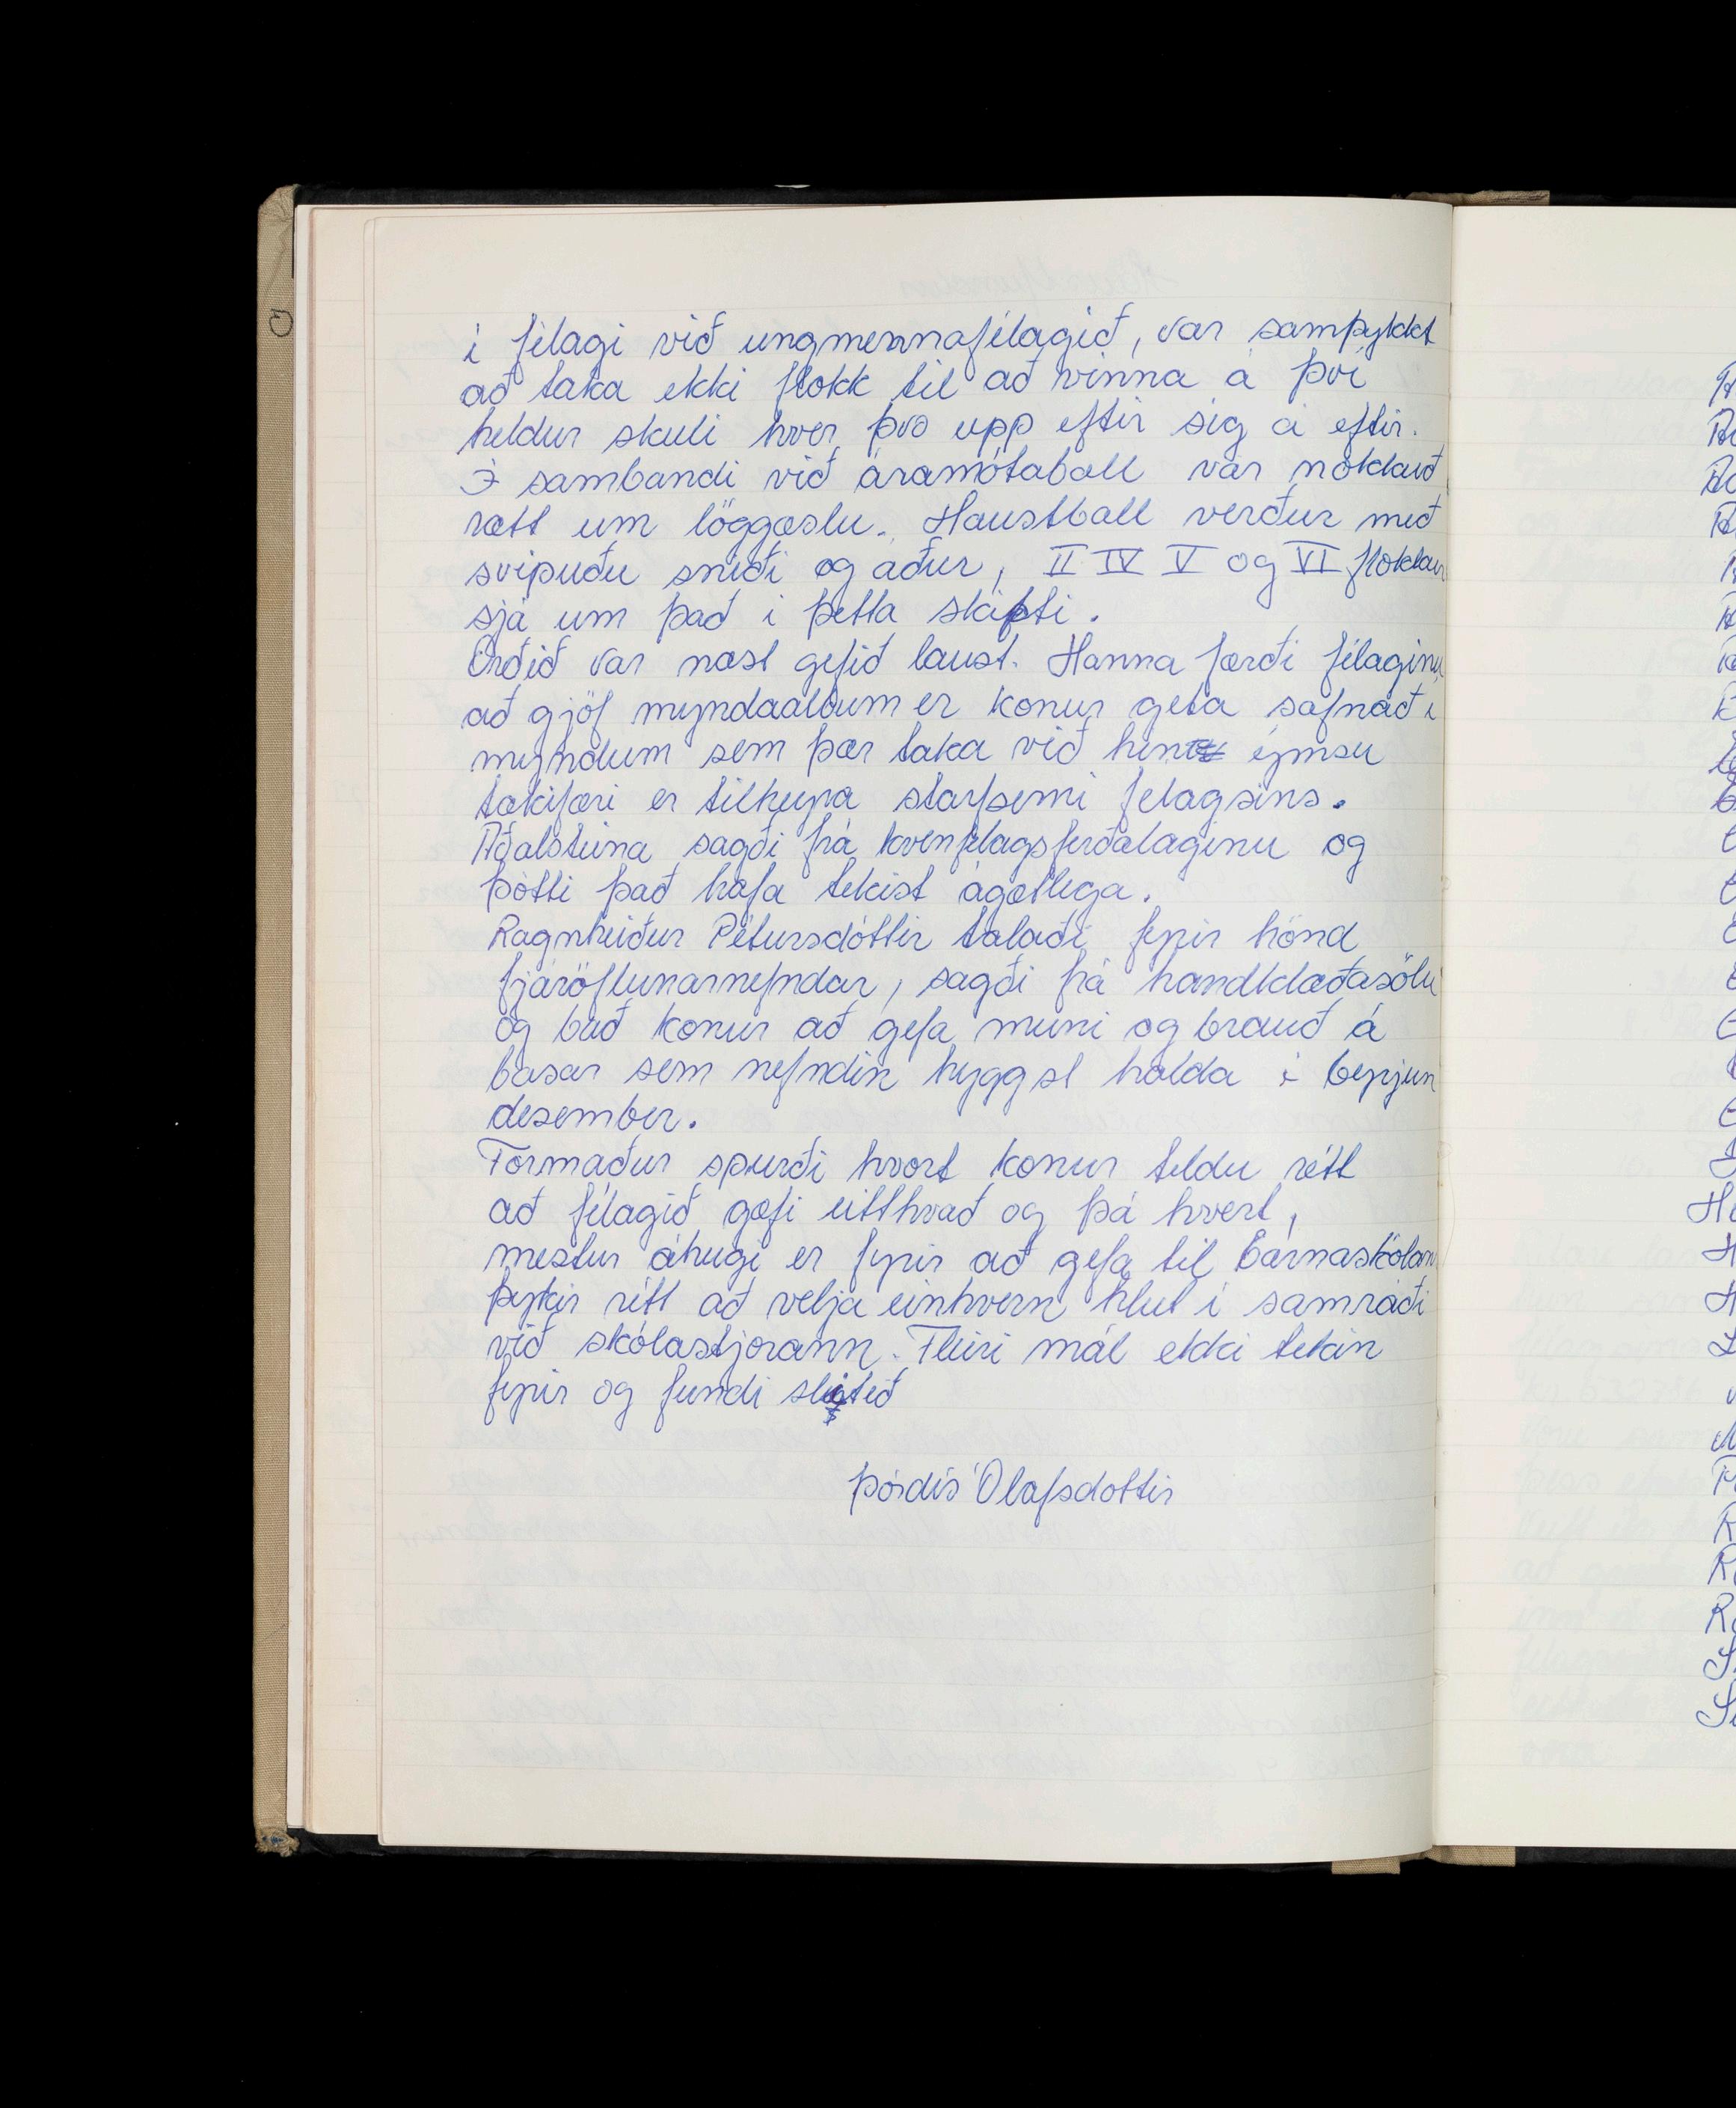 í félagi við ungmennafélagið, var samþykkt
að taka ekki flokk til að vinna á því
heldur skuli hver þvo upp eftir sig á eftir.
Í sambandi við áramótaball var nokkuð
rætt um löggæslu. Haustball verður með
svipuðu sniði og áður, II IV V og VI flokkur
sjá um það í þetta skipti.
Orðið var næst gefið laust. Hanna færði félaginu
að gjöf myndaalbum er konur geta safnað í
myndum sem þær taka við hin ýmsu
tækifæri er tilheyra starfsemi felagsins.
Aðalsteina sagði frá kvenfélagsferðalaginu og
þótti það hafa tekist ágætlega.
Ragnheiður Pétursdóttir talaði fyrir hönd
fjáröflunarnefndar, sagði frá handklæðasölu
og bað konur að gefa muni og brauð á
basar sem nefndin hyggst halda í byrjun
desember.
Formaður spurði hvort konur teldu rétt
að félagið gæfi eitthvað og þá hvert,
mestur áhugi er fyrir að gefa til barnaskólan
þykir rétt að velja einhvern hlut í samráði
við skólastjorann. Fleiri mál ekki tekin
fyrir og fundi slitið
Þórdís Ólafsdottir